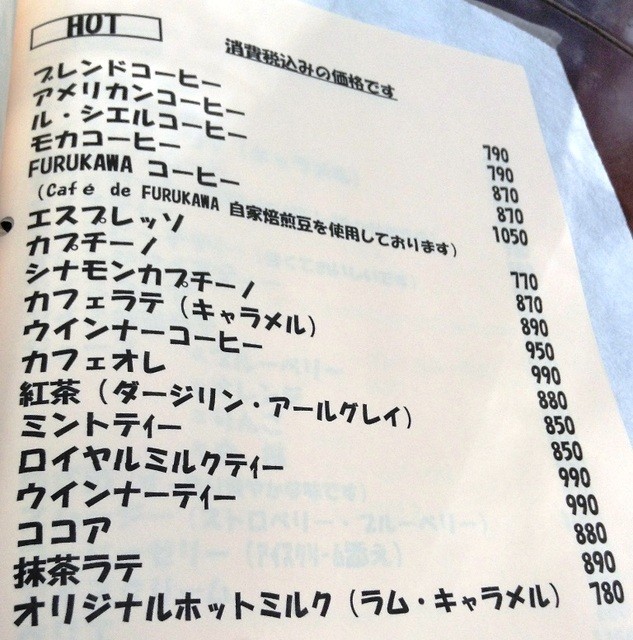 HOT
消費税込みの価格です
ブレンドコーヒー 790
アメリカンコーヒー 790
ル・シエルコーヒー 870
モカコーヒー 870
FURUKAWA コーヒー 1050
(Café de FURUKAWA 自家焙煎豆を使用しております)
エスプレッソ 770
カプチーノ 870
シナモンカプチーノ 890
カフェラテ (キャラメル) 950
ウインナーコーヒー 990
カフェオレ 880
紅茶 (ダージリン・アールグレイ) 850
ミントティー 850
ロイヤルミルクティー 990
ウインナーティー 990
ココア 880
抹茶ラテ 890
オリジナルホットミルク (ラム・キャラメル) 780